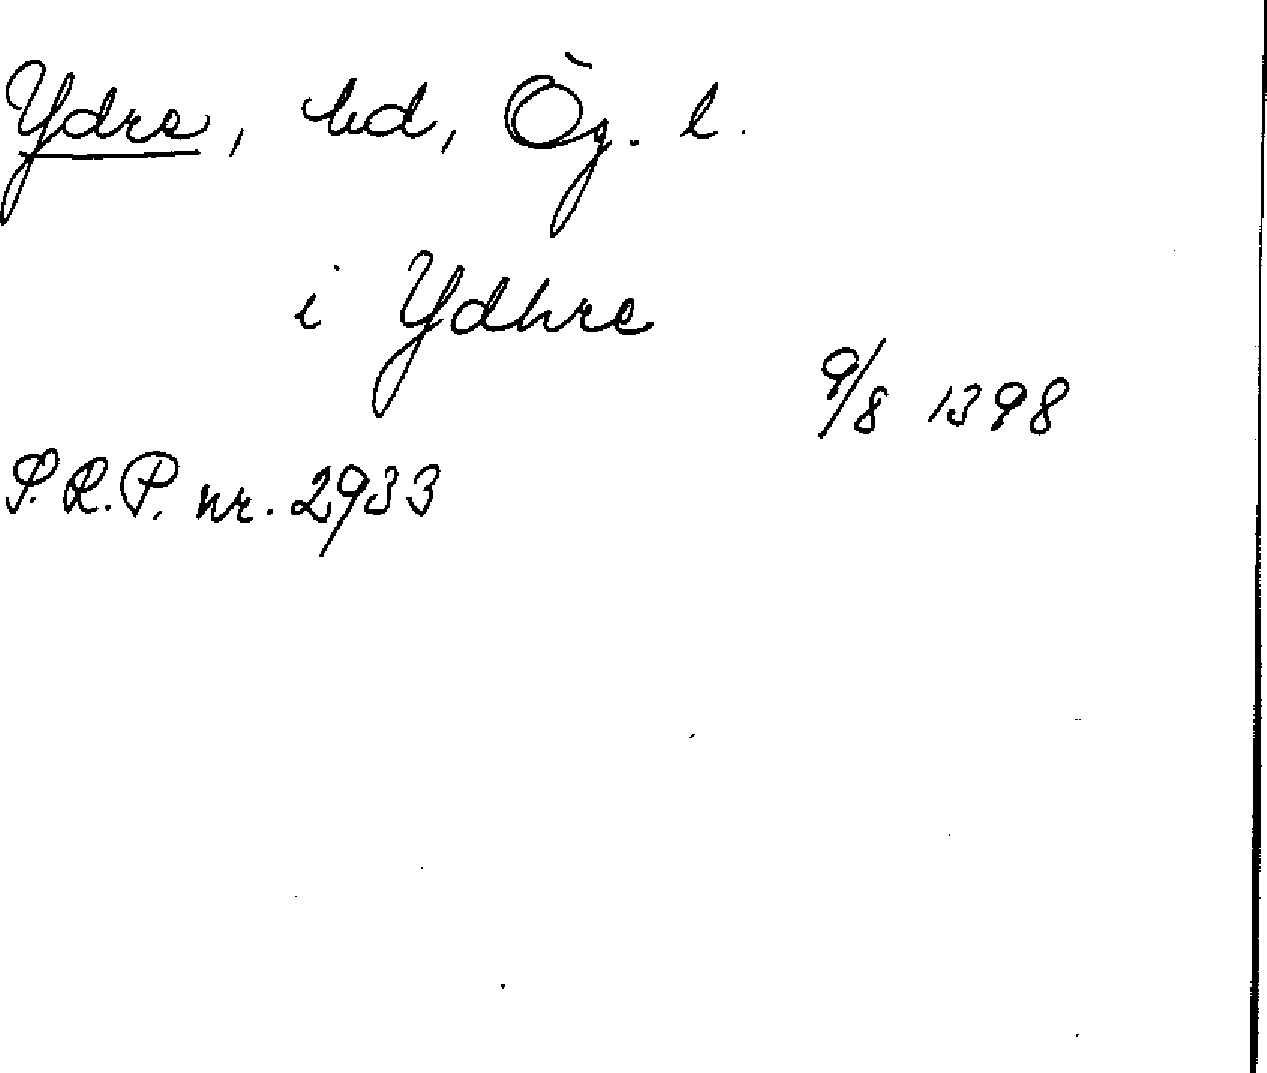 Ydre, hd, Ög. l.
i Ydhre
9/8 1398
S.R.P. nr. 2933